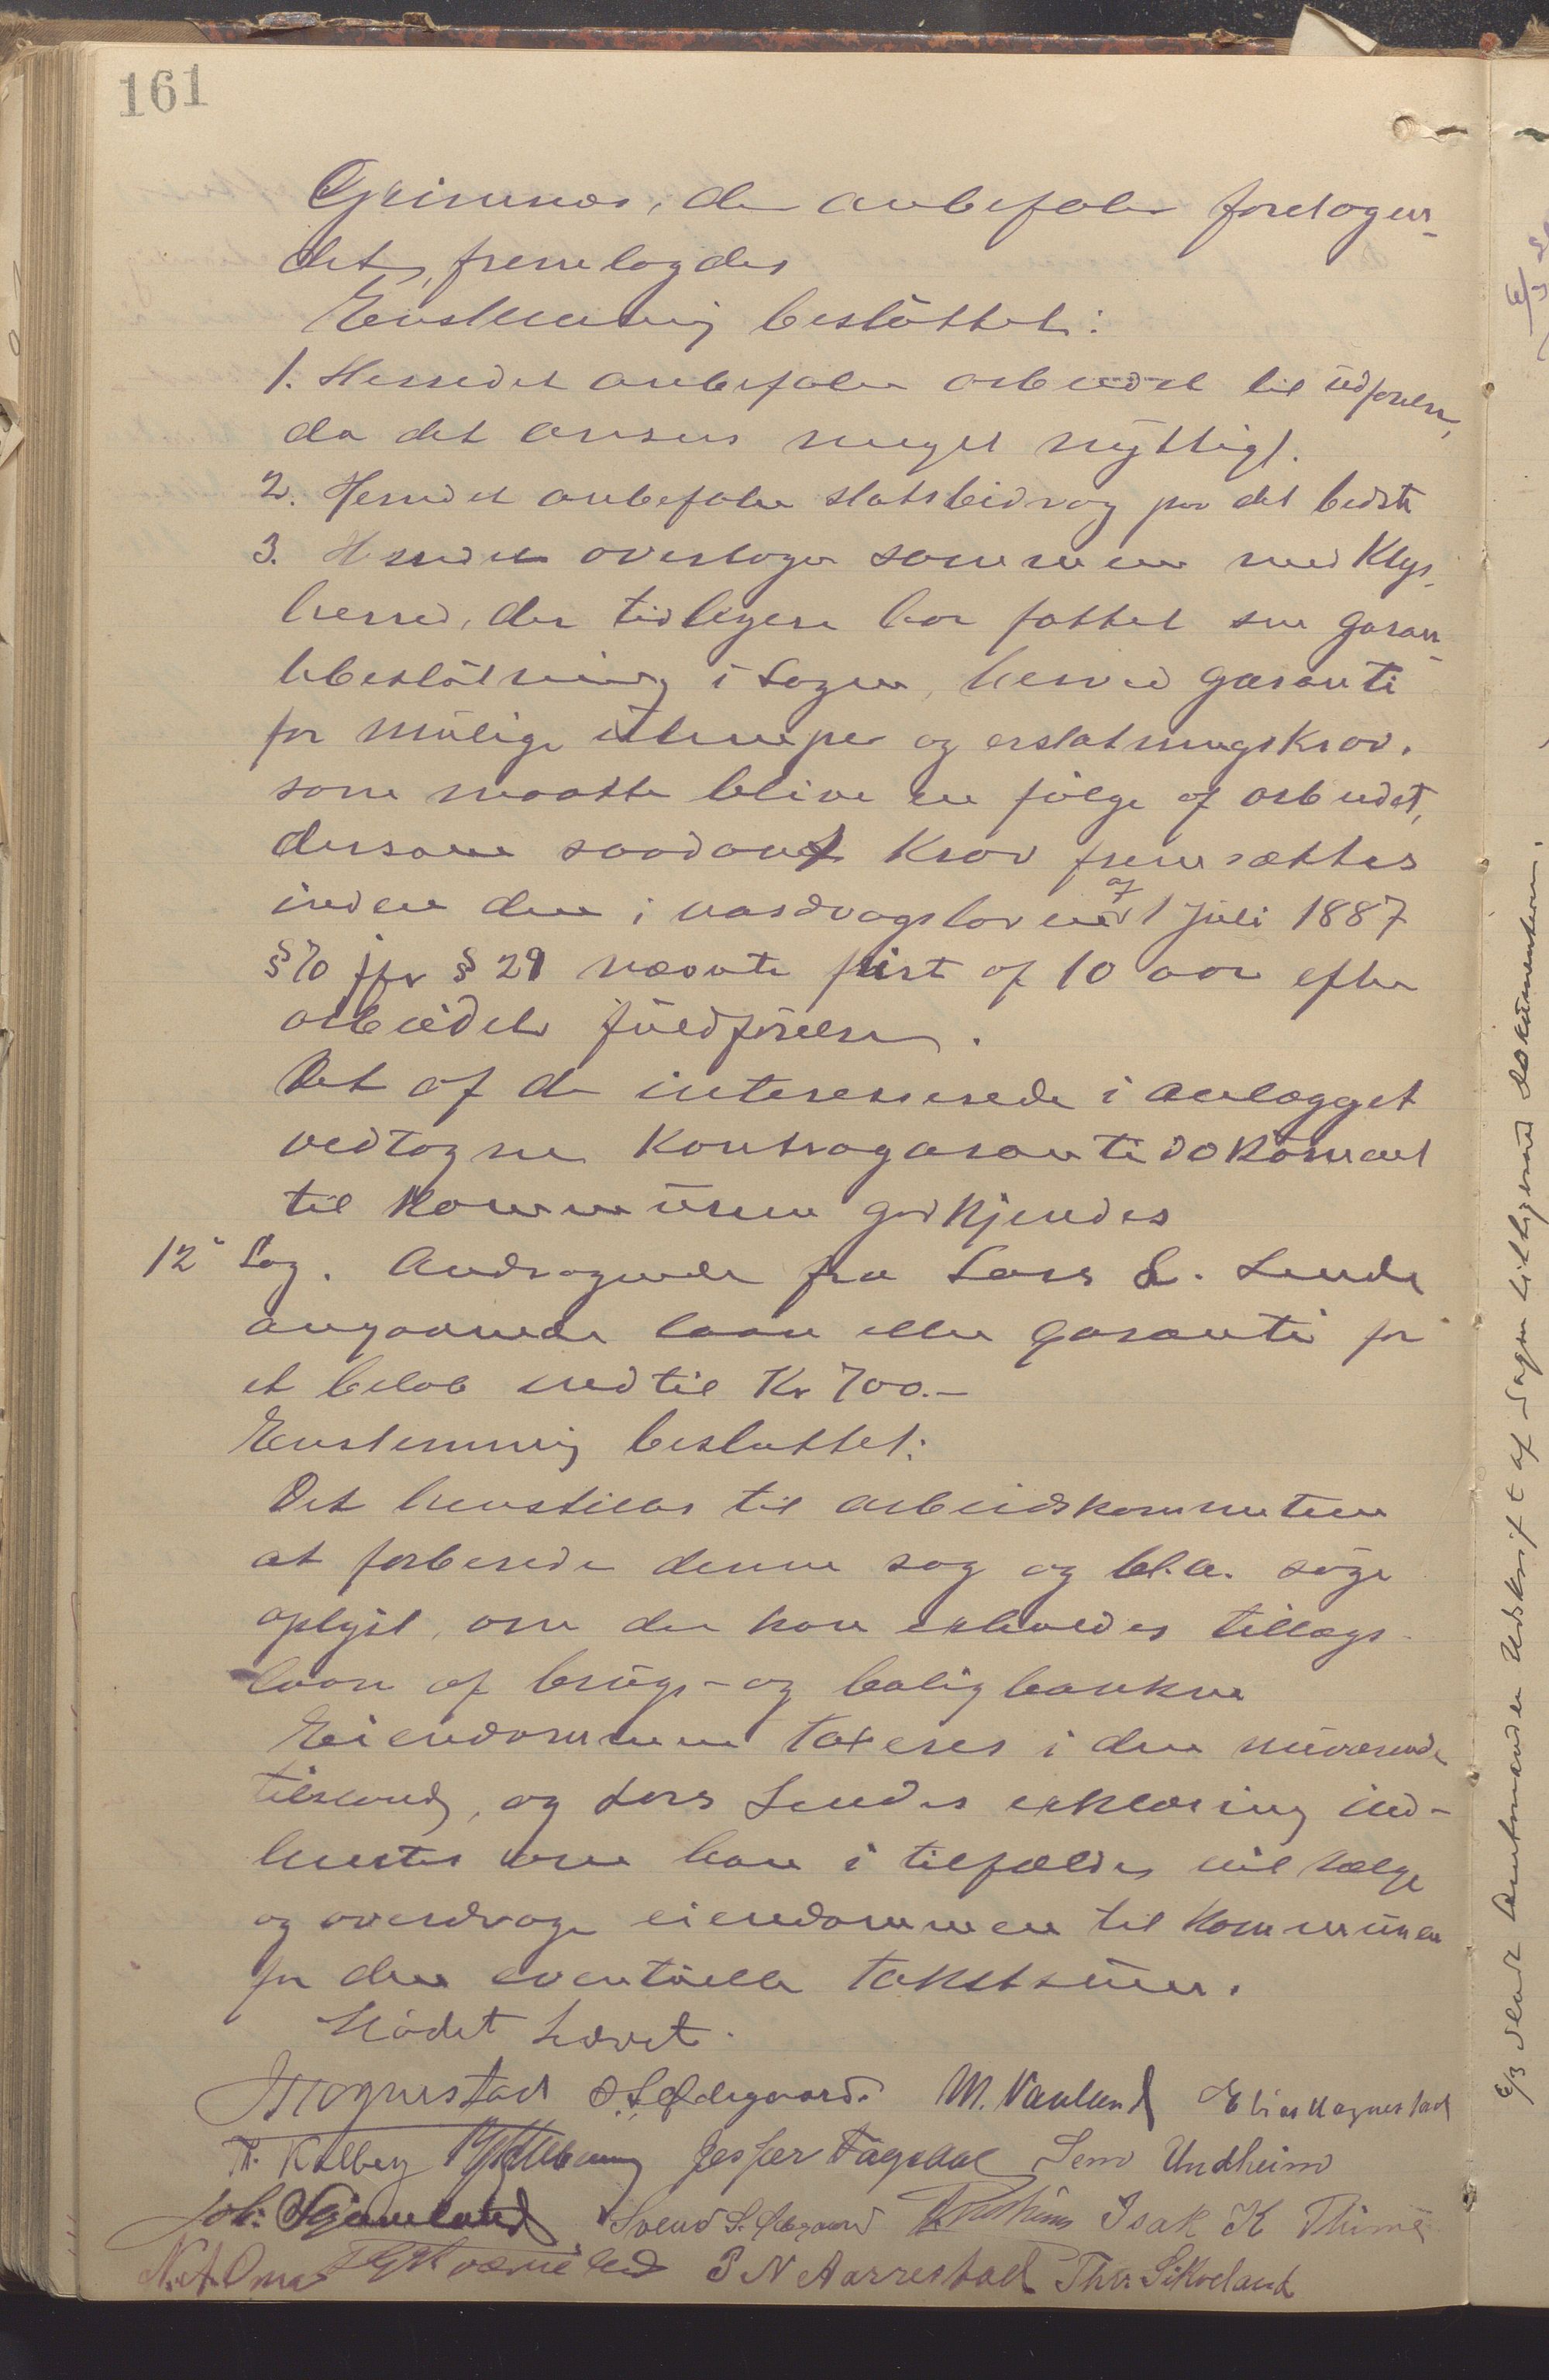 161
Grimnæs, der anbefaler foretagen-
det, fremlagdes
Enstemmig besluttet:
1. Herredet anbefaler arbeidet til udførelse,
da det ansees meget nyttigt.
2. Herredet anbefaler statsbidrag paa det bedste
3. Herredet overtager sammen med Klep
herred, der tidligere har fattet sin garan
tibeslutning i sagen, herved garanti
for mulige ulemper og erstatningskrav,
som maatte blive en følge af arbeidet,
dersom saadant krav fremsættes
inden den i vasdragsloven af 1 Juli 1887
§ 70 jfr § 29 nævnte frist af 10 aar efter
arbeidets fuldførelse.
Det af de interesserede i anlægget
vedtagne kontragarantidokument
til kommunen godkjendes
12 Sag. Andragende fra Lars L. Lende
angaaende laan eller garanti for
et beløb indtil Kr 700.-
Enstemmig besluttet:
Det henstilles til arbeidskommiteen
at forberede denne sag og bl.a. søge
oplyst, om der kan erholdes tillægs-
laan af brugs- og boligbanken
Eiendommen taxeres i den nuværende
tilstand, og Lars Lendes erklæring ind-
hentes om han i tilfælde vil sælge
og overdrage eiendommen til kommunen
for den eventuelle takstsum.
Mødet hævet.
Mognestad O. S. Ødegaard. M. Vaulund Elias Mognestad
Th. Kalberg Jesper Fagedal Sem Undheim
Joh: Skjæveland Svend S. Ødegaard Isak K Thime
N. A. Oma P N Aarrestad Thor Sikveland
Efs sendt Amtmanden Udskrift af sagen tilligemed dokumenterne.